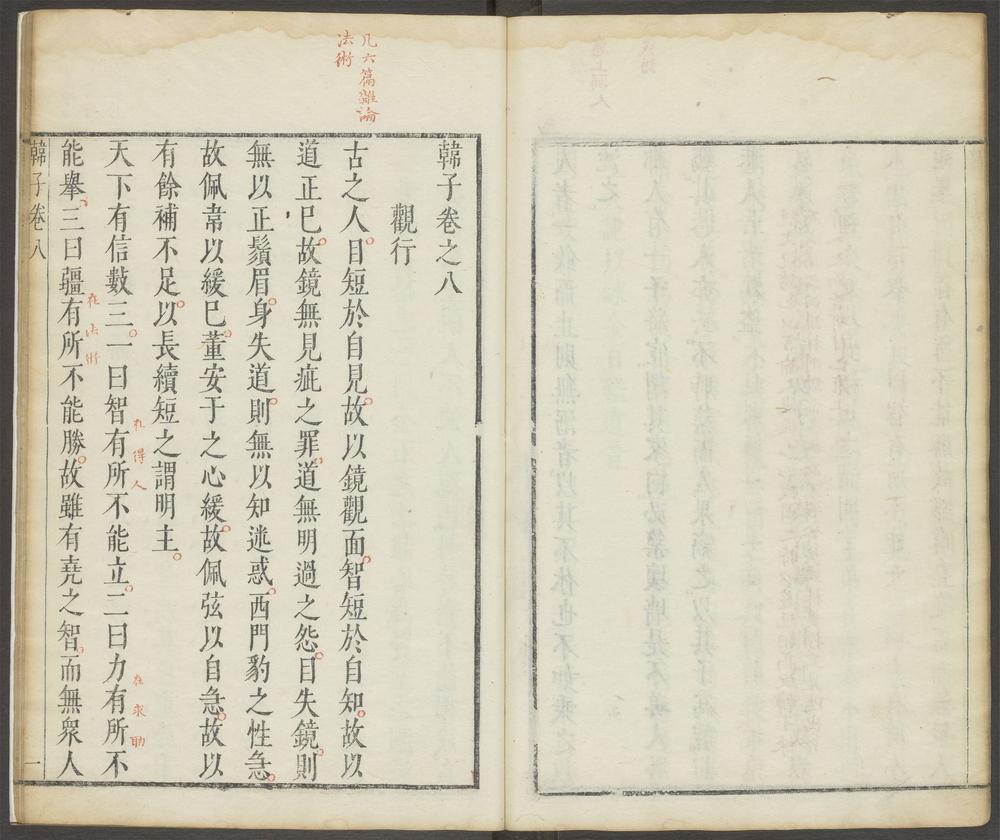 凡六篇雜論
法術
韓子卷之八
觀行
古之人目短於自見故以鏡觀面智短於自知故以
道正已故鏡無見疵之罪道無明過之怨目失鏡則
無以正鬚眉身失道則無以知迷惑西門豹之性急
故佩韋以緩已董安于之心緩故佩弦以自急故以
有餘補不足以長續短之謂明主
天下有信數三一曰智有所不能立二曰力有所不
在得人
在求助
能舉三曰彊有所不能勝故雖有堯之智而無衆人
在法術
韓子卷八
一